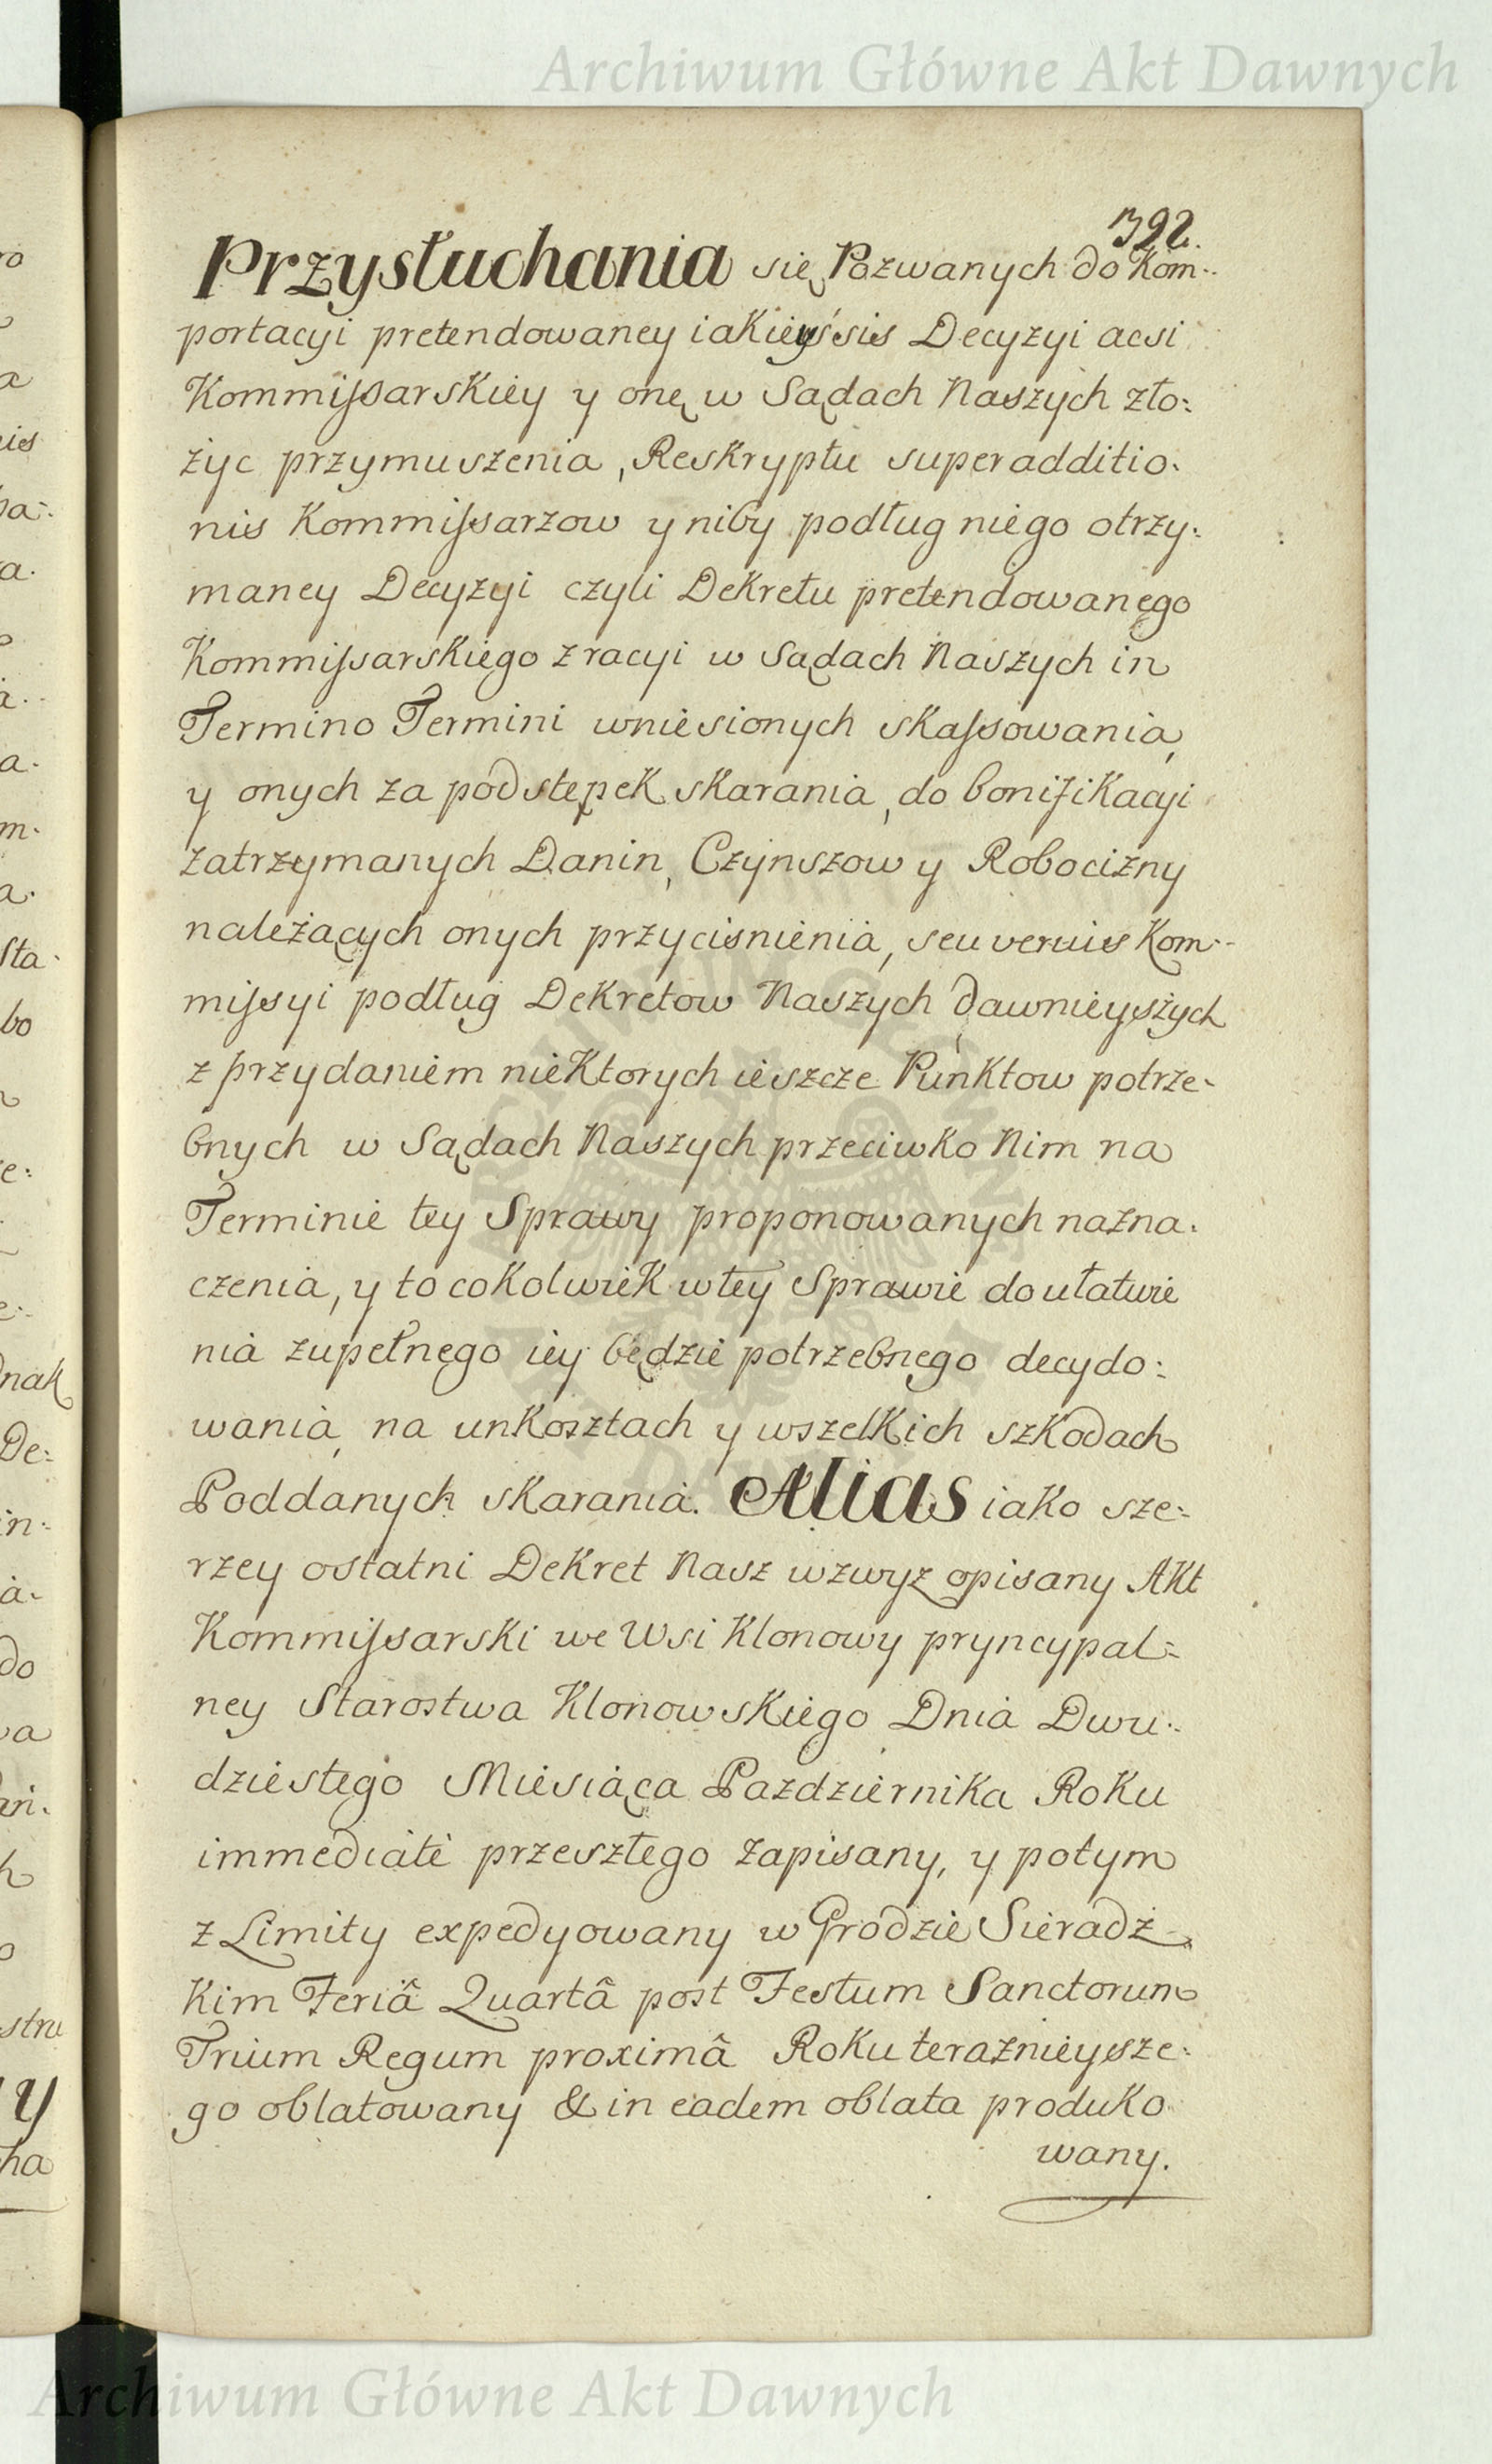 Archiwum Główne Akt Dawnych
392.
Przysłuchania się Pozwanych do Kom-
portacyi pretendowaney iakieyśsis Decyzyi acsi
Kommissarskiey y onę w Sądach Naszych zło:
życ przymuszenia, Reskryptu superadditio-
nis Kommissarzow y niby podług niego otrzy:
maney Decyzyi czyli Dekretu pretendowanego
Kommissarskiego z racyi w Sądach Naszych in
Termino Termini wniesionych skassowania,
y onych za podstępek skarania, do bonifikacyi
zatrzymanych Danin, Czynszow y Robocizny
należących onych przycisnienia, seu Kom-
missyi podług Dekretow Naszych dawnieyszych
z przydaniem niektorych ieszcze Punktow potrze-
bnych w Sądach Naszych przeciwko Nim na
Terminie tey Sprawy proponowanych nazna-
czenia, y to cokolwiek w tey Sprawie do ułatwie
nia zupełnego iey będzie potrzebnego decydo:
wania, na unkosztach y wszelkich szkodach
Poddanych skarania. Alias iako sze-
rzey ostatni Dekret Nasz wzwyz opisany Akt
Kommissarski we Wsi Klonowy pryncypal-
ney Starostwa Klonowskiego Dnia Dwu-
dziestego Miesiąca Pazdziernika Roku
immediate przeszłego zapisany, y potym
z Limity expedyowany w Grodzie Sieradz-
kim Feriâ Quartâ post Festum Sanctorum
Trium Regum proximâ Roku teraznieysze-
go oblatowany & in eadem oblata produko
wany.
Archiwum Główne Akt Dawnych